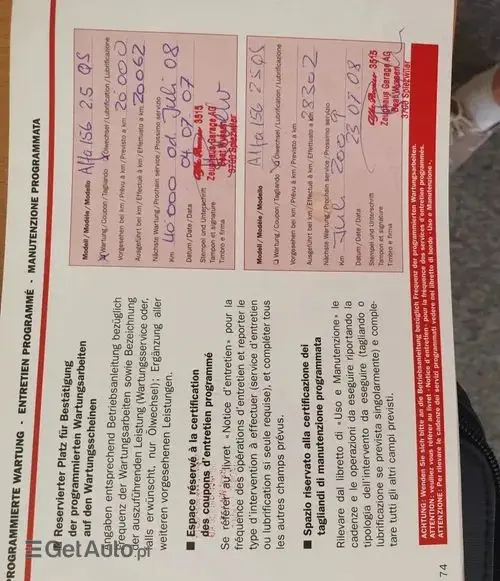 PROGRAMMIERTE WARTUNG - ENTRETIEN PROGRAMMÉ - MANUTENZIONE PROGRAMMATA
Reservierter Platz für Bestätigung
der programmierten Wartungsarbeiten
auf den Wartungsscheinen
Angaben entsprechend Betriebsanleitung bezüglich
Frequenz der Wartungsarbeiten sowie Bezeichnung
der auszuführenden Leistung (Wartungsservice oder,
falls erwünscht, nur Ölwechsel); Ergänzung aller
weiteren vorgesehenen Leistungen.
■ Espace réservé à la certification
des coupons d'entretien programmé
Se référer au livret «Notice d'entretien» pour la
fréquence des opérations d'entretien et reporter le
type d'intervention à effectuer (service d'entretien
ou lubrification si seule requise), et compléter tous
les autres champs prévus.
■ Spazio riservato alla certificazione dei
tagliandi di manutenzione programmata
Rilevare dal libretto di «Uso e Manutenzione» le
cadenze e le operazioni da eseguire riportando la
tipologia dell'intervento da eseguire (tagliando o
lubrificazione se prevista singolarmente) e comple-
tare tutti gli altri campi previsti.
74
Modell / Modèle / Modello Alfa 156 2.5 QS
Wartung / Coupon / Tagliando Ölwechsel / Lubrification / Lubrificazione
Vorgesehen bei km / Prévu à km / Previsto a km 20000
Ausgeführt bei km / Effectué à km / Effettuato a km 20062
Nächste Wartung / Prochain service / Prossimo servizio
Km 40000 od. Juli 08
Datum / Date / Data 04 07 07
Stempel und Unterschrift
Tampon et signature
Timbro e firma
3515
Zeughaus Garage AG
Beat Wyssen
3700 Spiezwiler
Modell / Modèle / Modello Alfa 156 2.5 QS
Wartung / Coupon / Tagliando Ölwechsel / Lubrification / Lubrificazione
Vorgesehen bei km / Prévu à km / Previsto a km
Ausgeführt bei km / Effectué à km / Effettuato a km 28302
Nächste Wartung / Prochain service / Prossimo servizio
Km Juli
Datum / Date / Data 23 07 08
Stempel und Unterschrift
Tampon et signature
Timbro e firma
3515
Zeughaus Garage AG
Beat Wyssen
3700 Spiezwiler
ACHTUNG: Wenden Sie sich bitte an die Betriebsanleitung bezüglich Frequenz der programmierten Wartungsarbeiten.
ATTENTION: veuillez vous référer au livret «Notice d'entretien» pour la fréquence des services d'entretien programmés.
ATTENZIONE: Per rilevare le cadenze dei servizi programmati vedere nel libretto di bordo «Uso e Manutenzione».
GetAuto.pl